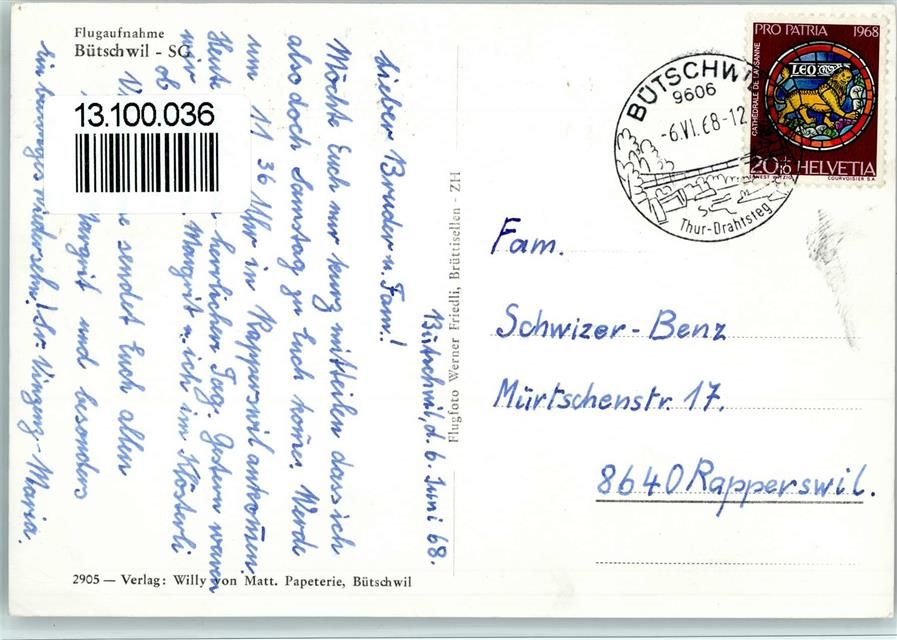 Flugaufnahme
Bütschwil - SG
13.100.036
Bütschwil, d. 6. Juni 68.
Lieber Bruder u. Fam.!
Möchte Euch nur kurz mitteilen dass ich
also doch Samstag zu Euch kome. Werde
um 11 36 Uhr in Rapperswil ankomen.
Heute herrlicher Tag. Gestern waren
wir Margrit u. ich im Klösterli
ob
sendet Euch allen
Margrit und besonders
ein baldiges Wiedersehn! Sr. Vinzenz-Maria.
Flugfoto Werner Friedli, Brüttisellen - ZH
2905 — Verlag: Willy von Matt. Papeterie, Bütschwil
BÜTSCHWIL
9606
-6.VI.68-12
Thur-Drahtsteg
PRO PATRIA 1968
CATHÉDRALE DE LAUSANNE
LEO
20+10 HELVETIA
COURVOISIER S.A.
Fam.
Schwizer-Benz
Mürtschenstr. 17.
8640 Rapperswil.